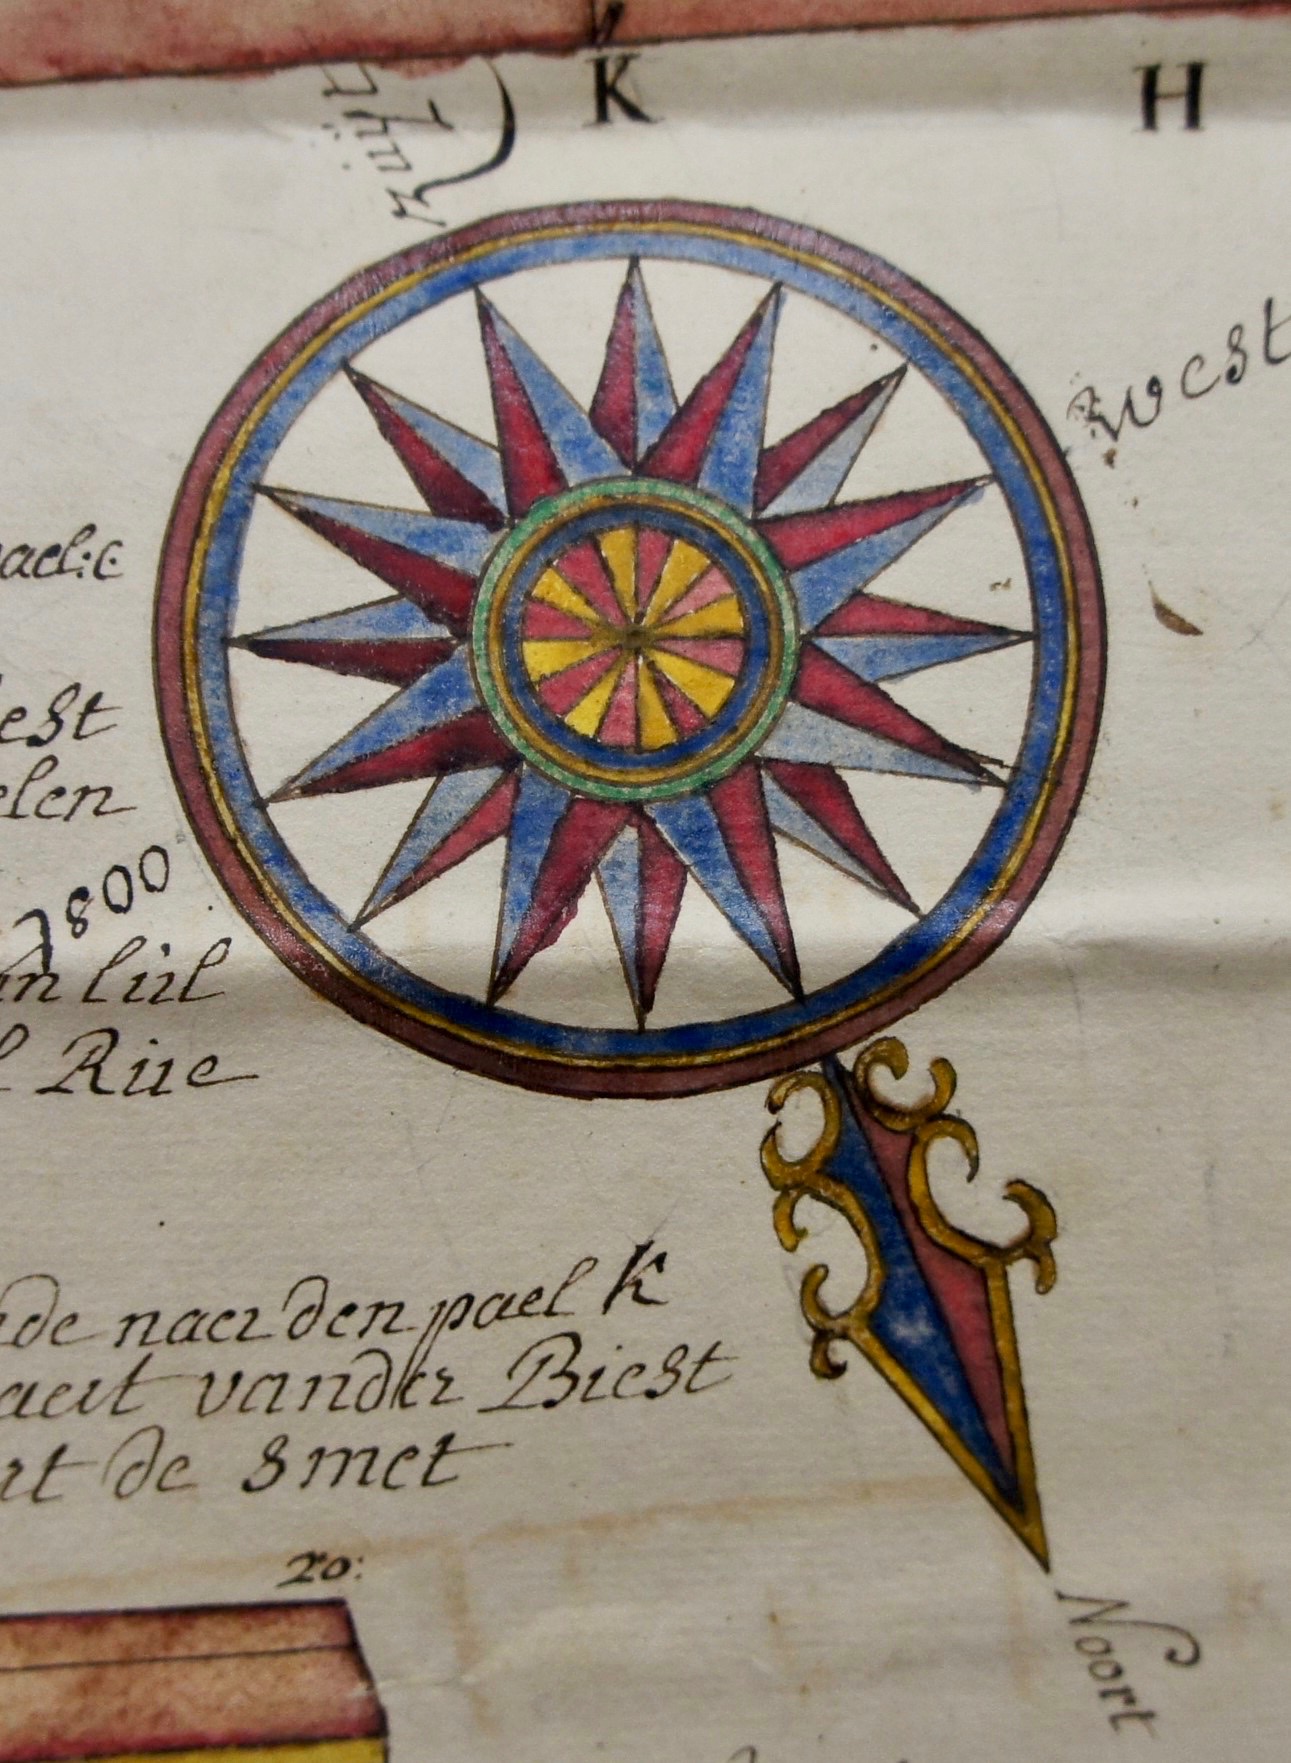 K H
Zuijt
West
est
elen
1800
an lúl
Rúe
de naer den pael K
aert vander Biest
rt de Smet
20:
Noort